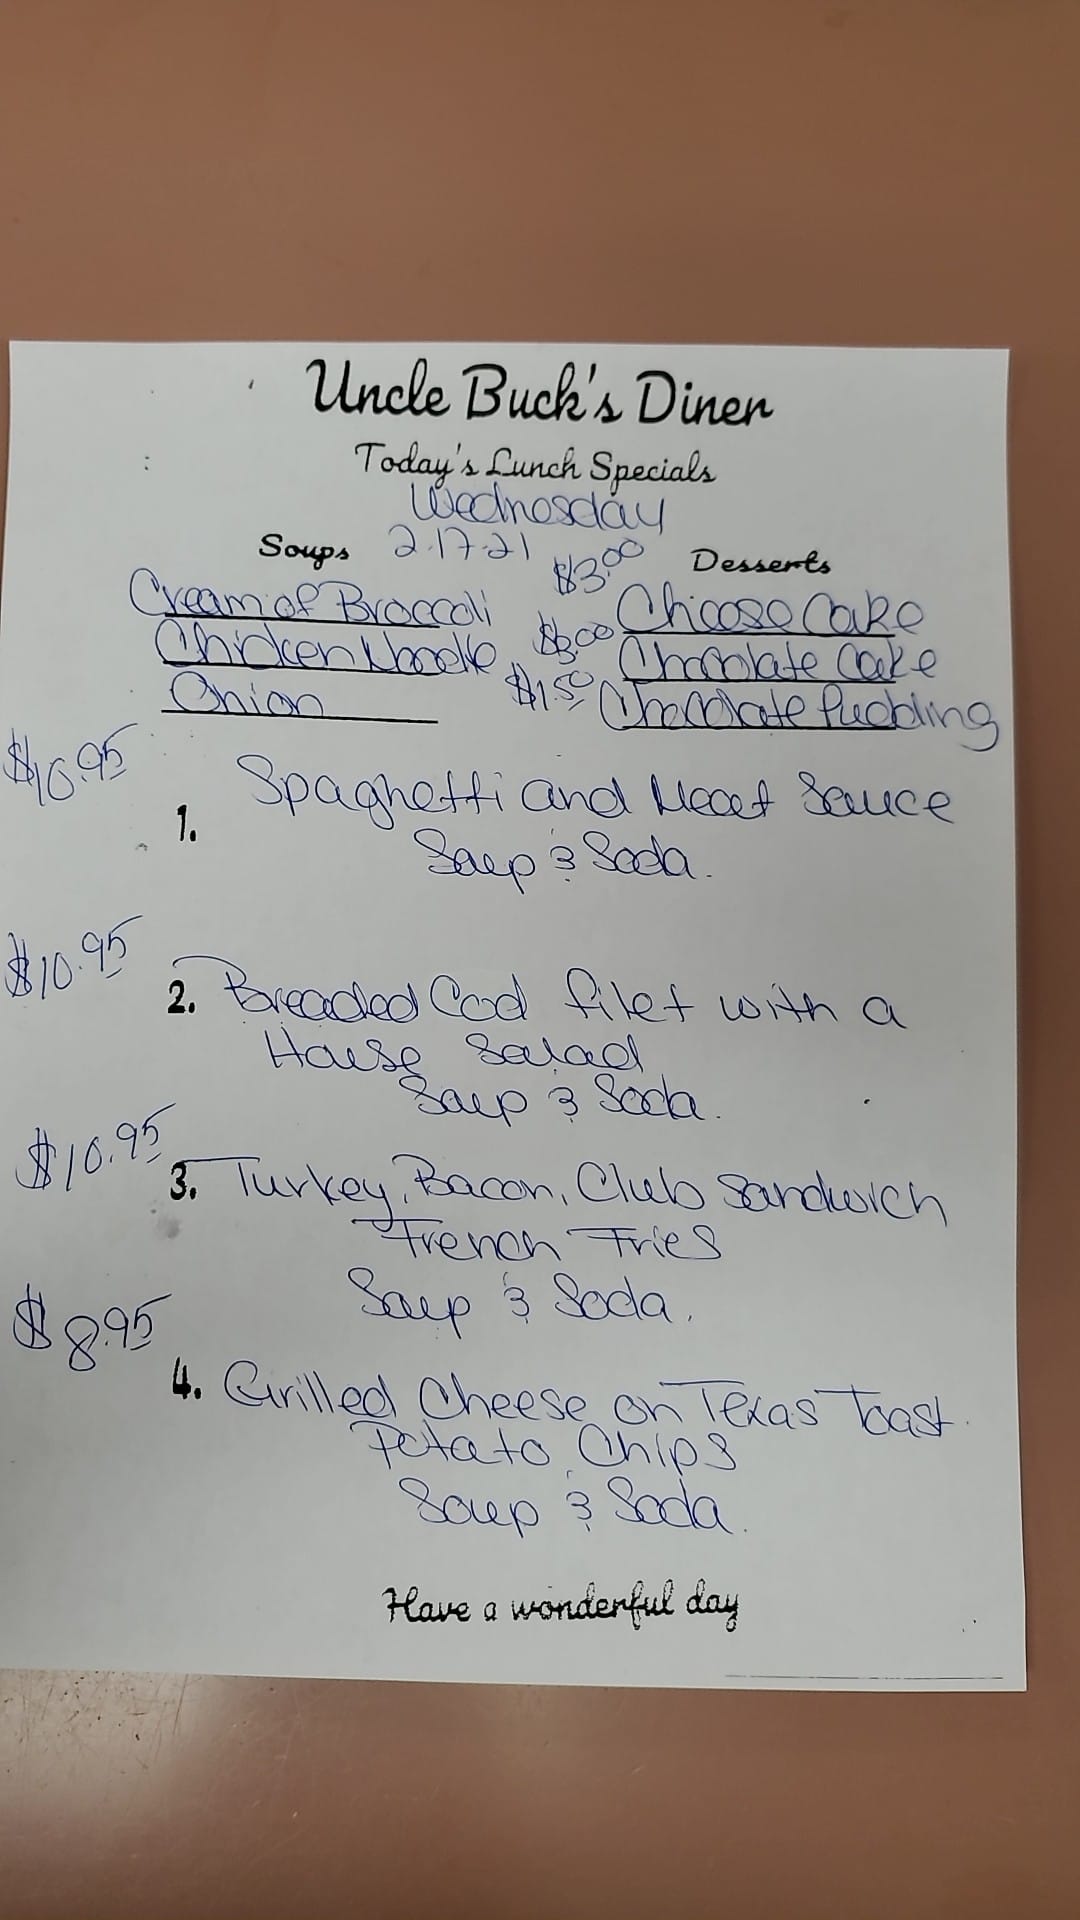 Uncle Buck's Diner
Today's Lunch Specials
Wednesday
Soups 2.17.21 Desserts
Cream of Broccoli $3.00 Cheese Cake
Chicken Noodle $3.00 Chocolate Cake
Onion $1.50 Chocolate Pudding
$10.95
1. Spaghetti and Meat Sauce
Soup & Soda.
$10.95
2. Breaded Cod filet with a
House Salad
Soup & Soda.
$10.95
3. Turkey, Bacon, Club Sandwich
French Fries
Soup & Soda.
$8.95
4. Grilled Cheese on Texas Toast.
Potato Chips
Soup & Soda.
Have a wonderful day